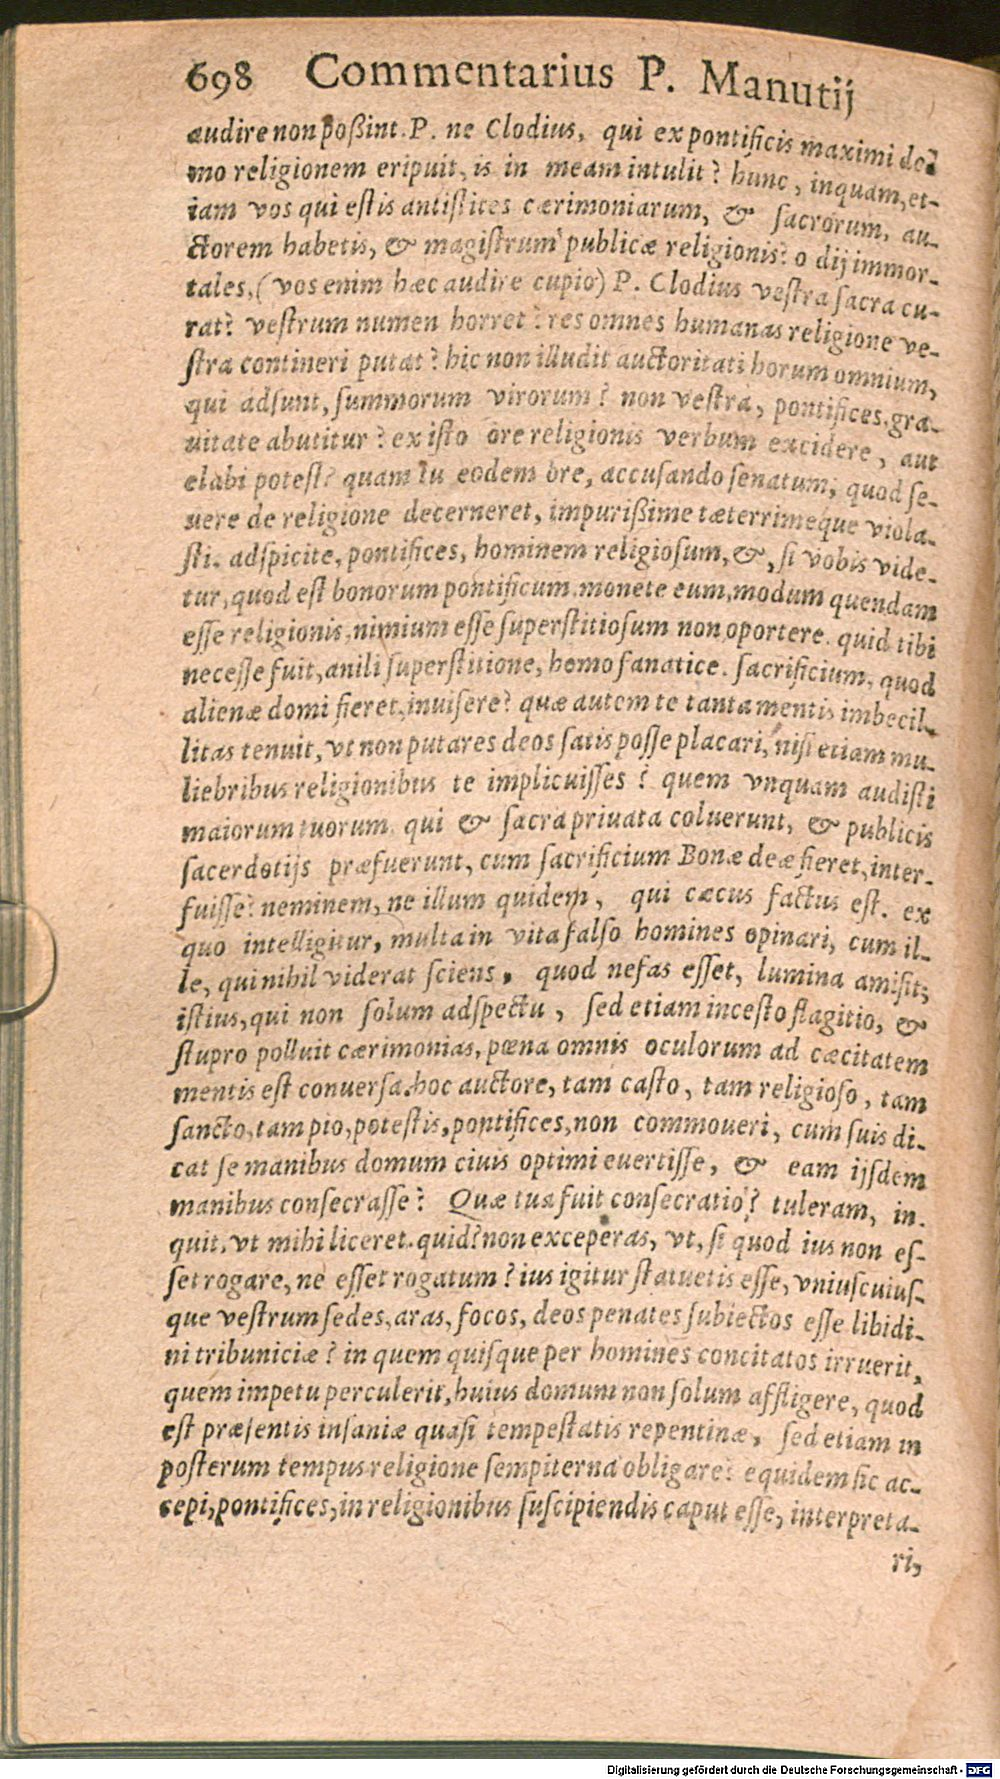 698 Commentarius P. Manutij
audire non poßint. P. ne Clodius, qui ex pontificis maximi do-
mo religionem eripuit, is in meam intulit? hunc, inquam, et-
iam vos qui estis antistites cærimoniarum, & sacrorum, au-
ctorem habetis, & magistrum publicæ religionis? o dij immor-
tales, (vos enim hæc audire cupio) P. Clodius vestra sacra cu-
rat? vestrum numen horret? res omnes humanas religione ve-
stra contineri putat? hic non illudit auctoritati horum omnium,
qui adsunt, summorum virorum? non vestra, pontifices, gra-
uitate abutitur? ex isto ore religionis verbum excidere, aut
elabi potest? quam tu eodem ore, accusando senatum, quod se-
uere de religione decerneret, impurißime tæterrimeque viola-
sti. adspicite, pontifices, hominem religiosum, &, si vobis vide-
tur, quod est bonorum pontificum. monete eum, modum quendam
esse religionis, nimium esse superstitiosum non oportere. quid tibi
necesse fuit, anili superstitione, homo fanatice. sacrificium, quod
alienæ domi fieret, inuisere? quæ autem te tanta mentis imbecil-
litas tenuit, vt non putares deos satis posse placari, nisi etiam mu-
liebribus religionibus te implicuisses? quem vnquam audisti
maiorum tuorum, qui & sacra priuata coluerunt, & publicis
sacerdotijs præfuerunt, cum sacrificium Bonæ deæ fieret, inter-
fuisse? neminem, ne illum quidem, qui cæcus factus est. ex
quo intelligitur, multa in vita falso homines opinari, cum il-
le, qui nihil viderat sciens, quod nefas esset, lumina amisit;
istius, qui non solum adspectu, sed etiam incesto flagitio, &
stupro polluit cærimonias, pœna omnis oculorum ad cæcitatem
mentis est conuersa. hoc auctore, tam casto, tam religioso, tam
sancto, tam pio, potestis, pontifices, non commoueri, cum suis di-
cat se manibus domum ciuis optimi euertisse, & eam ijsdem
manibus consecrasse? Quæ tua fuit consecratio? tuleram, in-
quit, vt mihi liceret. quid? non exceperas, vt, si quod ius non es-
set rogare, ne esset rogatum? ius igitur statuetis esse, vniuscuius-
que vestrum sedes, aras, focos, deos penates subiectos esse libidi-
ni tribuniciæ? in quem quisque per homines concitatos irruerit,
quem impetu perculerit, huius domum non solum affligere, quod
est præsentis insaniæ quasi tempestatis repentinæ, sed etiam in
posterum tempus religione sempiterna obligare? equidem sic ac-
cepi, pontifices, in religionibus suscipiendis caput esse, interpreta-
ri,
Digitalisierung gefördert durch die Deutsche Forschungsgemeinschaft - DFG